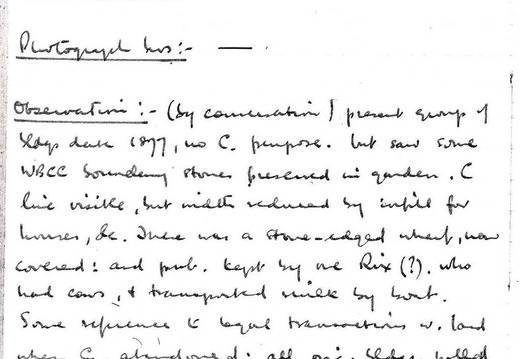 Photograph Nos:- —
Observation:- (By conversation) present group of
bldgs date 1877, no C. purpose. but saw some
WBCC boundary stones preserved in garden. C
line visible, but width reduced by infill for
houses, &c. There was a stone-edged wharf, now
covered: and pub. kept by one Rix (?). who
had cows, & transported milk by boat.
Some reference to legal transactions w. land
when C. abandoned: all orig. bldgs pulled